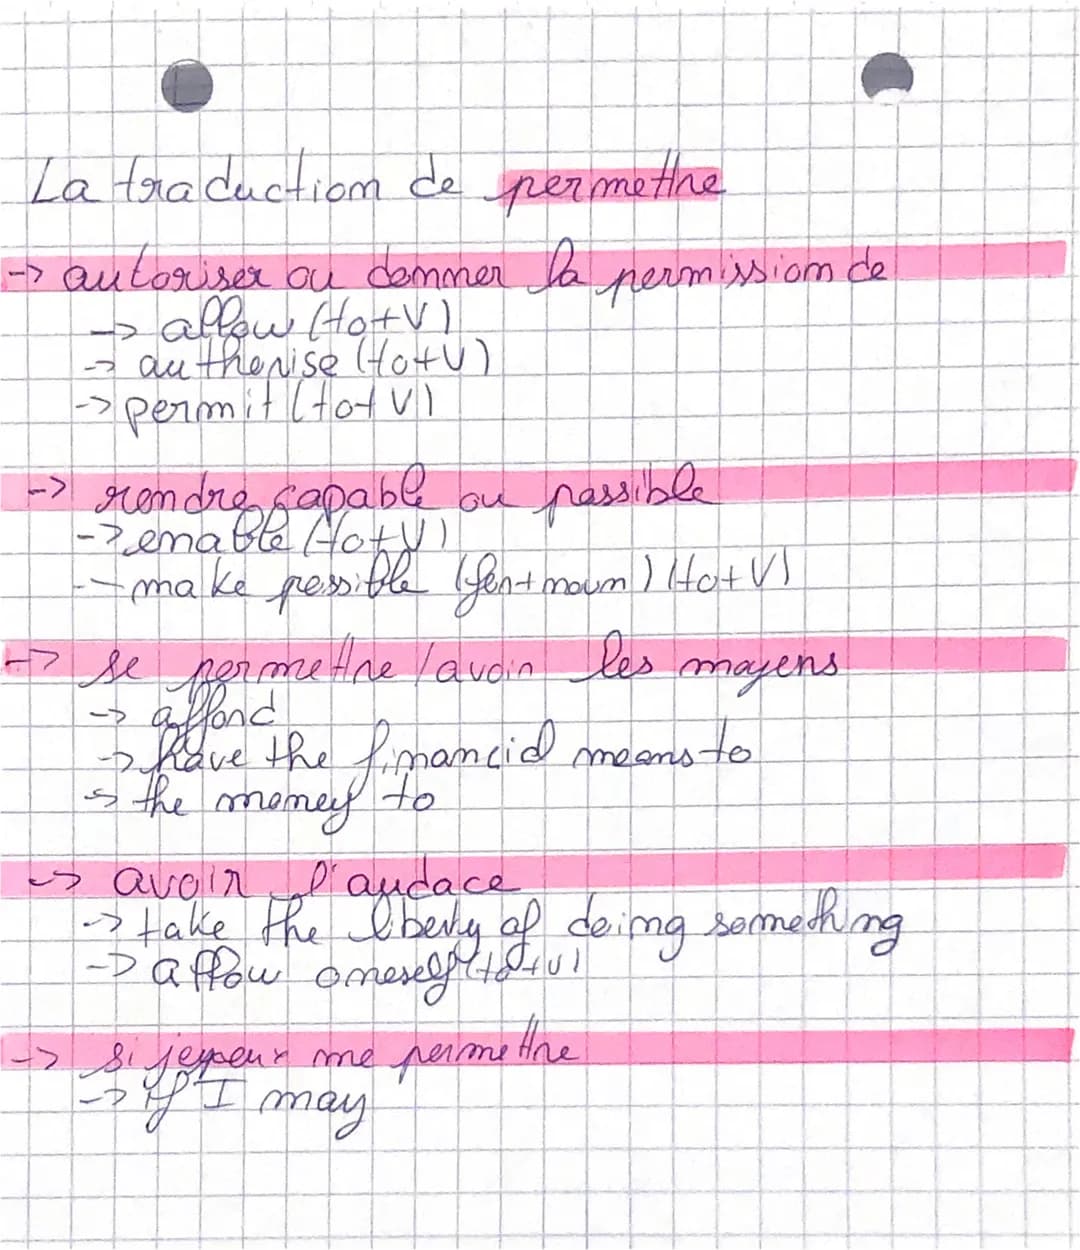 La traduction de permettre
-> autoriser ou donner la permission de
-> allow (to+V)
-> authorise (to+V)
-> permit (to+V)
-> rendre capable ou possible
-> enable (to+V)
- make possible (for+noun) (to+V)
-> se permettre / avoir les moyens
-> afford
-> have the financial means to
-> the money to
-> avoir l'audace
-> take the liberty of doing something
-> allow oneself (to+v)
-> si je peux me permettre
-> if I may